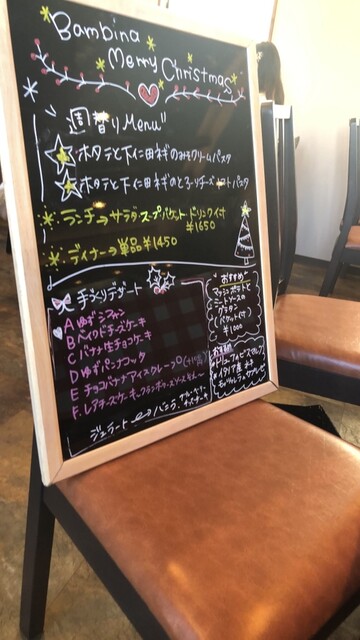 Bambina
Merry Christmas
週替りMenu"
ホタテと下仁田ネギのみそクリームパスタ
ホタテと下仁田ネギのとろ〜りチーズトマトパスタ
ランチ→サラダ・スープ・バケット・ドリンク付
¥1650
ディナー→単品¥1450
手づくりデザート
A ゆずシフォン
B ベイクドチーズケーキ
C バナナ生チョコケーキ
D ゆずパンナコッタ
E チョコバナナアイスクレープ
F レアチーズケーキ
ジェラート バニラ
おすすめ
マッシュポテトと
ミートソースの
グラタン
(バケット付)
¥1000